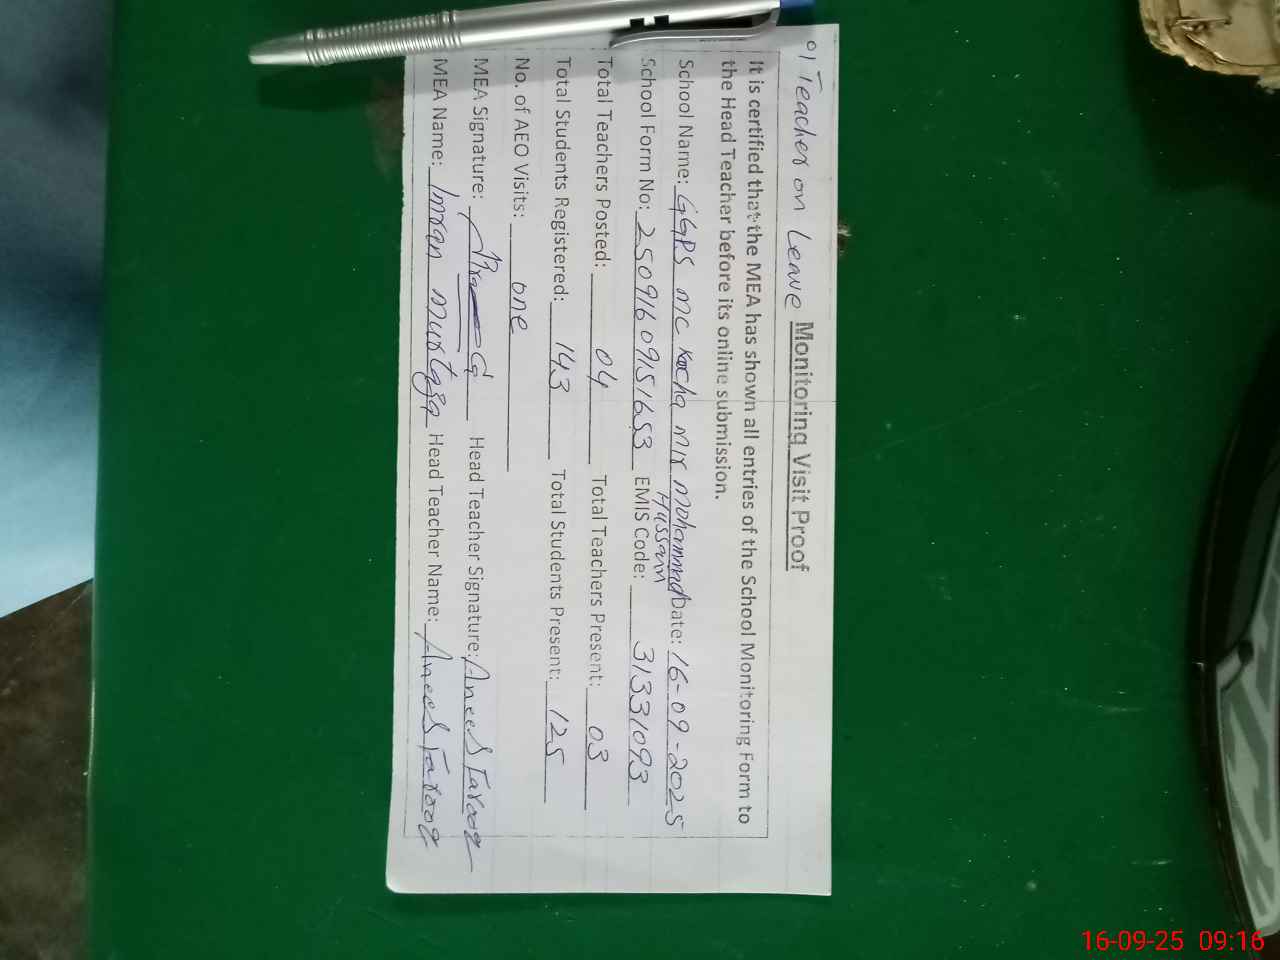 01 Teacher on Leave
Monitoring Visit Proof
It is certified that the MEA has shown all entries of the School Monitoring Form to
the Head Teacher before its online submission.
School Name: GGPS MC Kocha Mir Mohammad Hussain Date: 16-09-2025
School Form No: 25091609151653 EMIS Code: 31331093
Total Teachers Posted: 04 Total Teachers Present: 03
Total Students Registered: 143 Total Students Present: 125
No. of AEO Visits: one
MEA Signature: Head Teacher Signature: Anees Farooq
MEA Name: Imran Murtaza Head Teacher Name: Anees Farooq
16-09-25 09:16